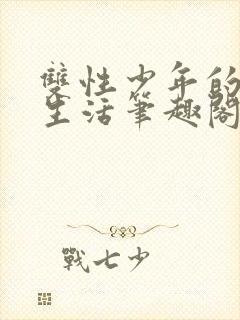 雙性少年的
生活筆趣閣
戰七少